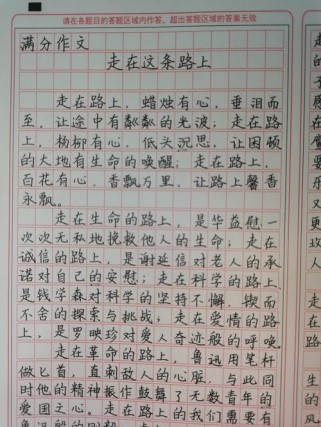 请在各题目的答题区域内作答，超出答题区域的答案无效
满分作文
走在这条路上
走在路上，蜡烛有心，垂泪而
至，让途中有粼粼的光波；走在路
上，杨柳有心，低头沉思，让困顿
的大地有生命的唤醒；走在路上，
百花有心，香飘万里，让路上馨香
永飘。
走在生命的路上，是华益慰一
次次无私地挽救他人的生命；走在
诚信的路上，是谢延信对老人的承
诺对自己的安慰；走在科学的路上
是钱学森对科学的坚持不懈，锲而
不舍的探索与挑战；走在爱情的路
上，是罗映珍对爱人奇迹般的呼唤
走在革命的路上，鲁迅用笔杆
做匕首，直刺敌人的心脏，与此同
时他的精神振作鼓舞了无数青年的
爱国之心。走在路上的我们需要有